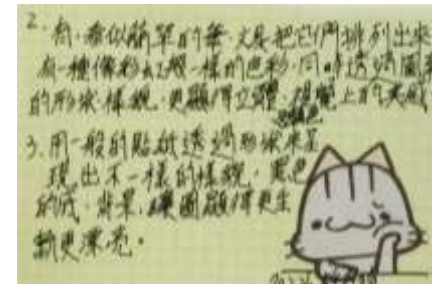 2. 有,看似簡單的筆,只是把它們排列出來
有一種像彩虹般一樣的色彩,同時透過圖案
的形狀樣貌,更顯得立體,視覺上的美感
3. 用一般的貼紙透過形狀來呈
現出不一樣的樣貌,黑色
的底,背景,讓圖顯得更生
動更漂亮。